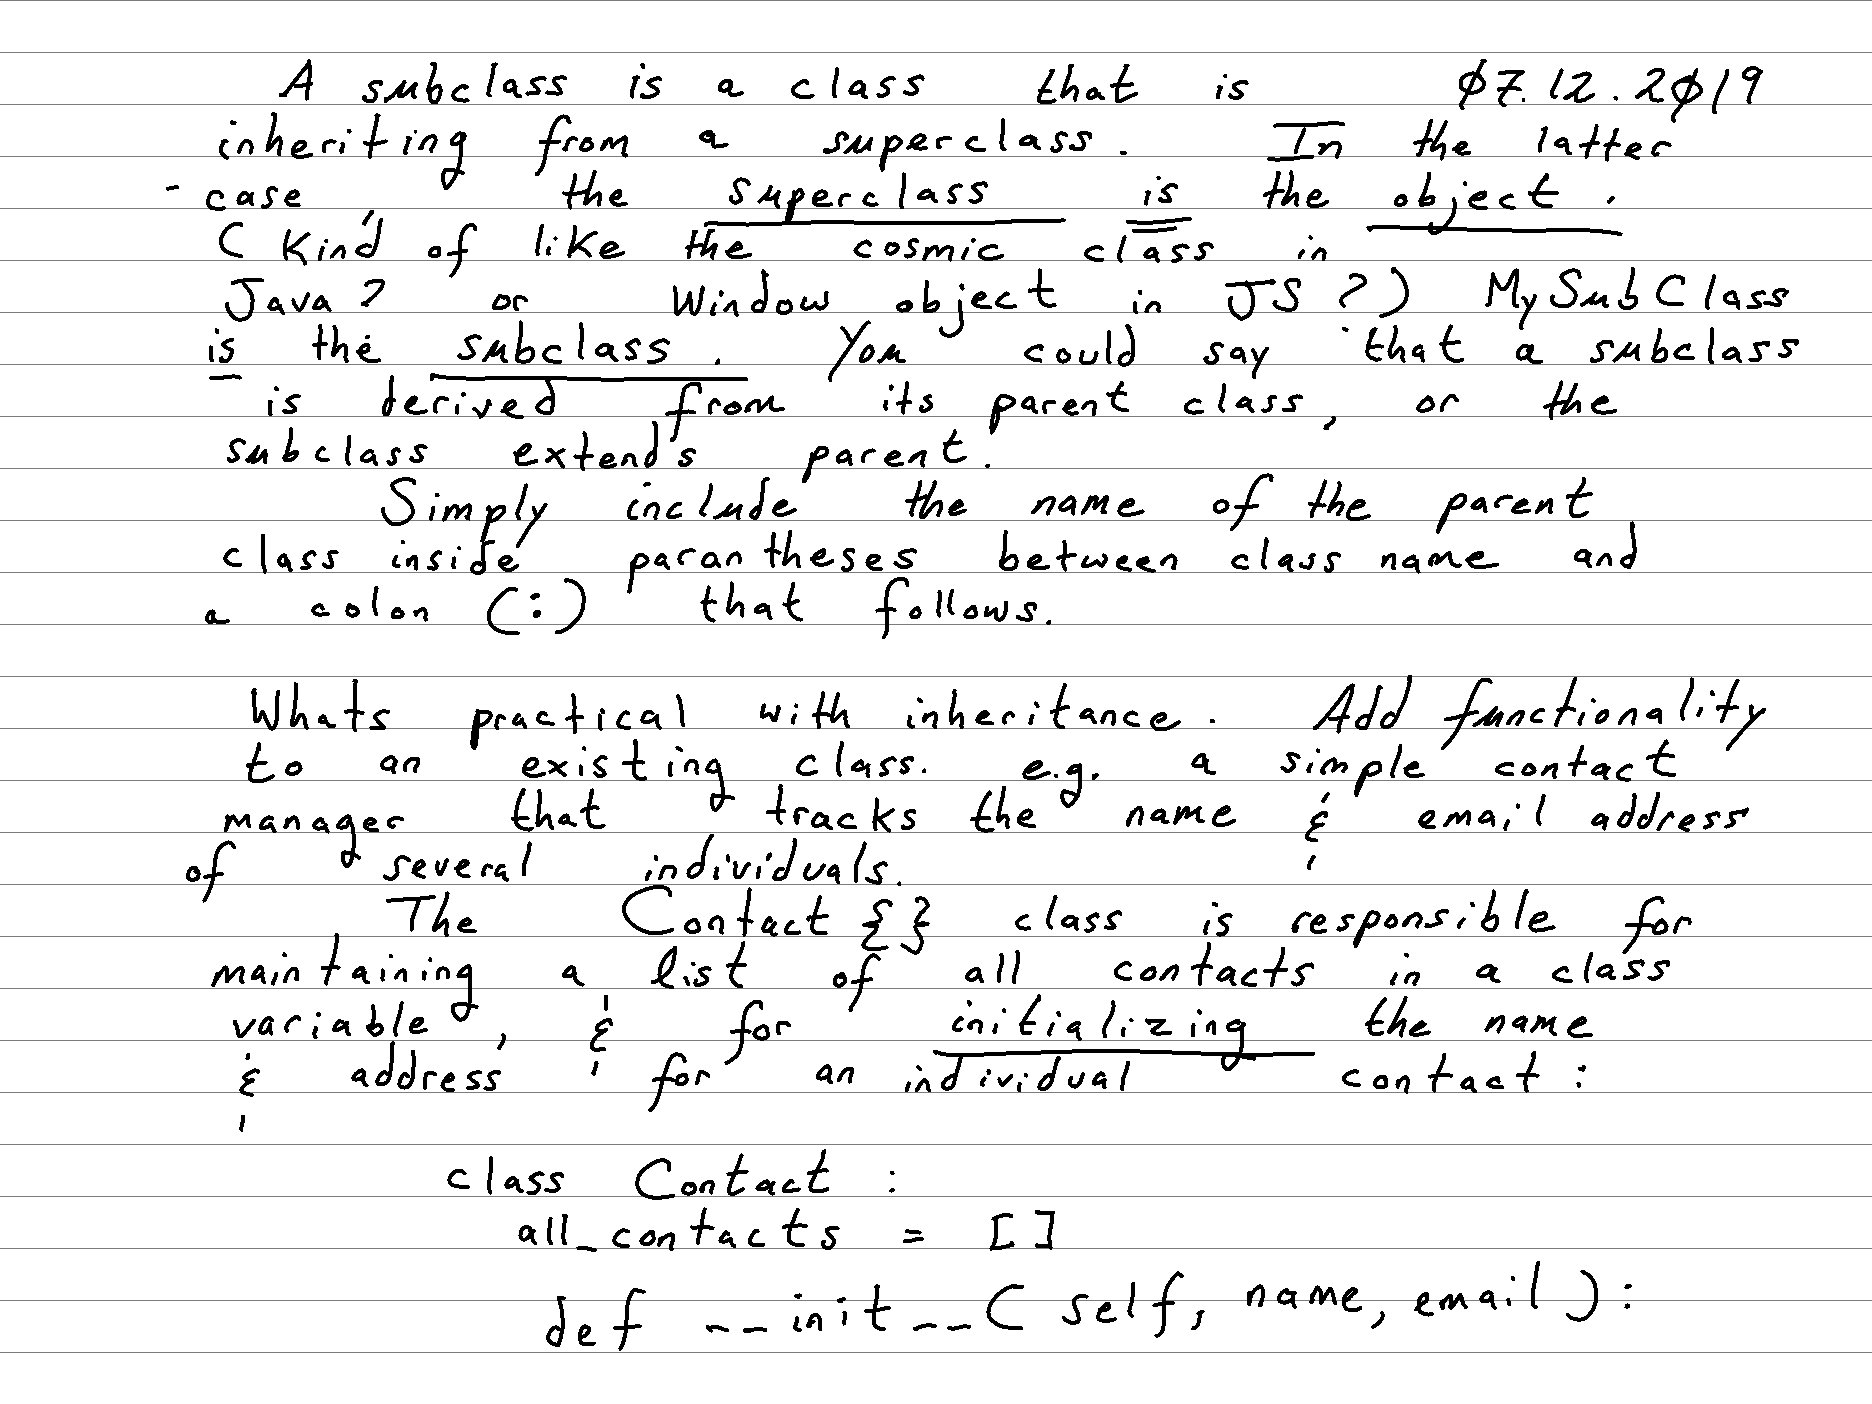 A subclass is a class that is 07.12.2019
inheriting from a superclass. In the latter
- case, the superclass is the object.
( Kind of like the cosmic class in
Java? or Window object in JS?) MySubClass
is the subclass. You could say that a subclass
is derived from its parent class, or the
subclass extends parent.
Simply include the name of the parent
class inside parantheses between class name and
a colon (:) that follows.
Whats practical with inheritance. Add functionality
to an existing class. e.g. a simple contact
manager that tracks the name & email address
of several individuals.
The Contact {} class is responsible for
maintaining a list of all contacts in a class
variable, & for initializing the name
& address for an individual contact:
class Contact :
all_contacts = []
def __init__( self, name, email ):